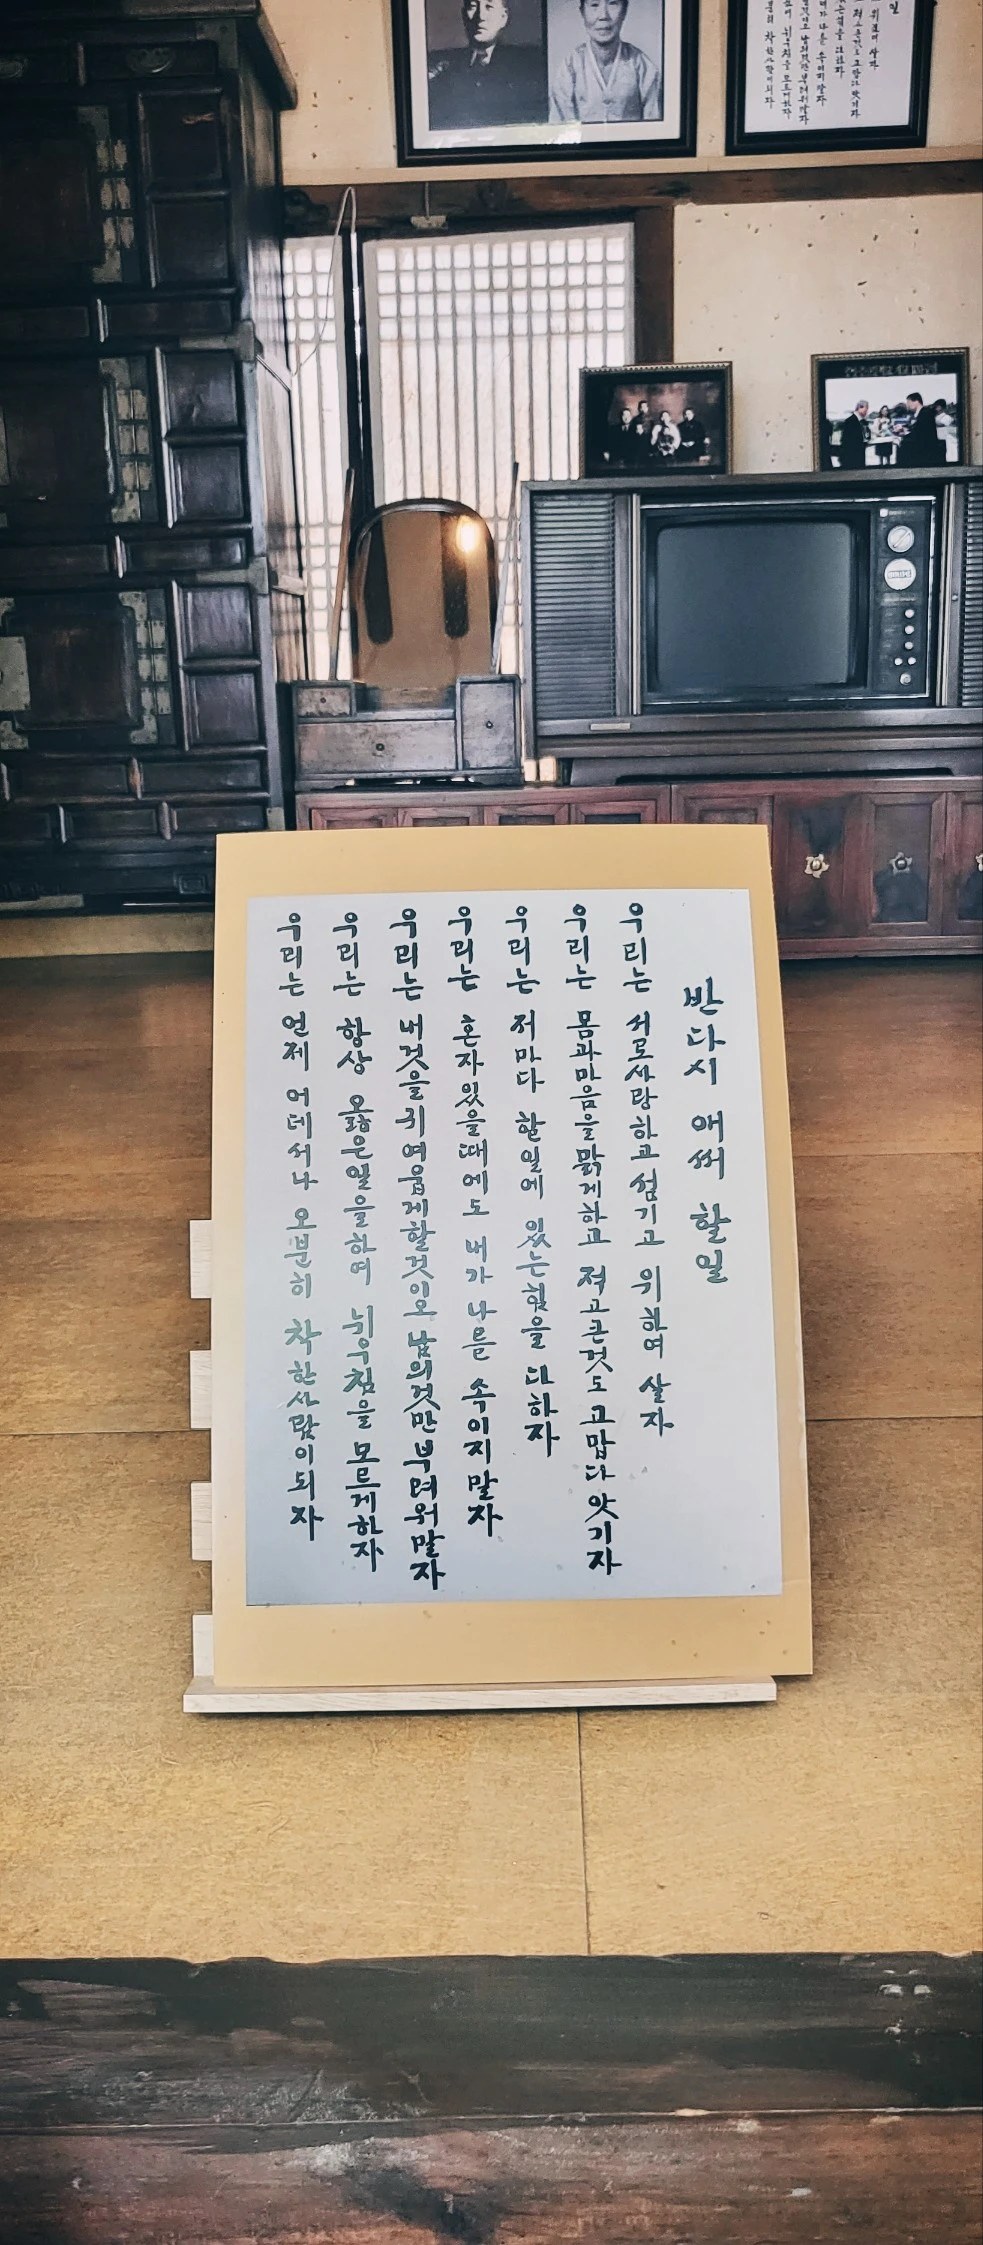 반다시 애써 할 일
우리는 서로사랑하고 섬기고 위하여 살자
우리는 몸과마음을 맑게하고 적고큰것도 고맙다 앗기자
우리는 저마다 할일에 있는힘을 다하자
우리는 혼자있을때에도 내가 나를 속이지말자
우리는 내것을 귀여웁게할것이오 남의것만 부려워말자
우리는 항상 옳은일을하며 뉘우침을 모르게하자
우리는 언제 어데서나 오분히 착한사람이되자